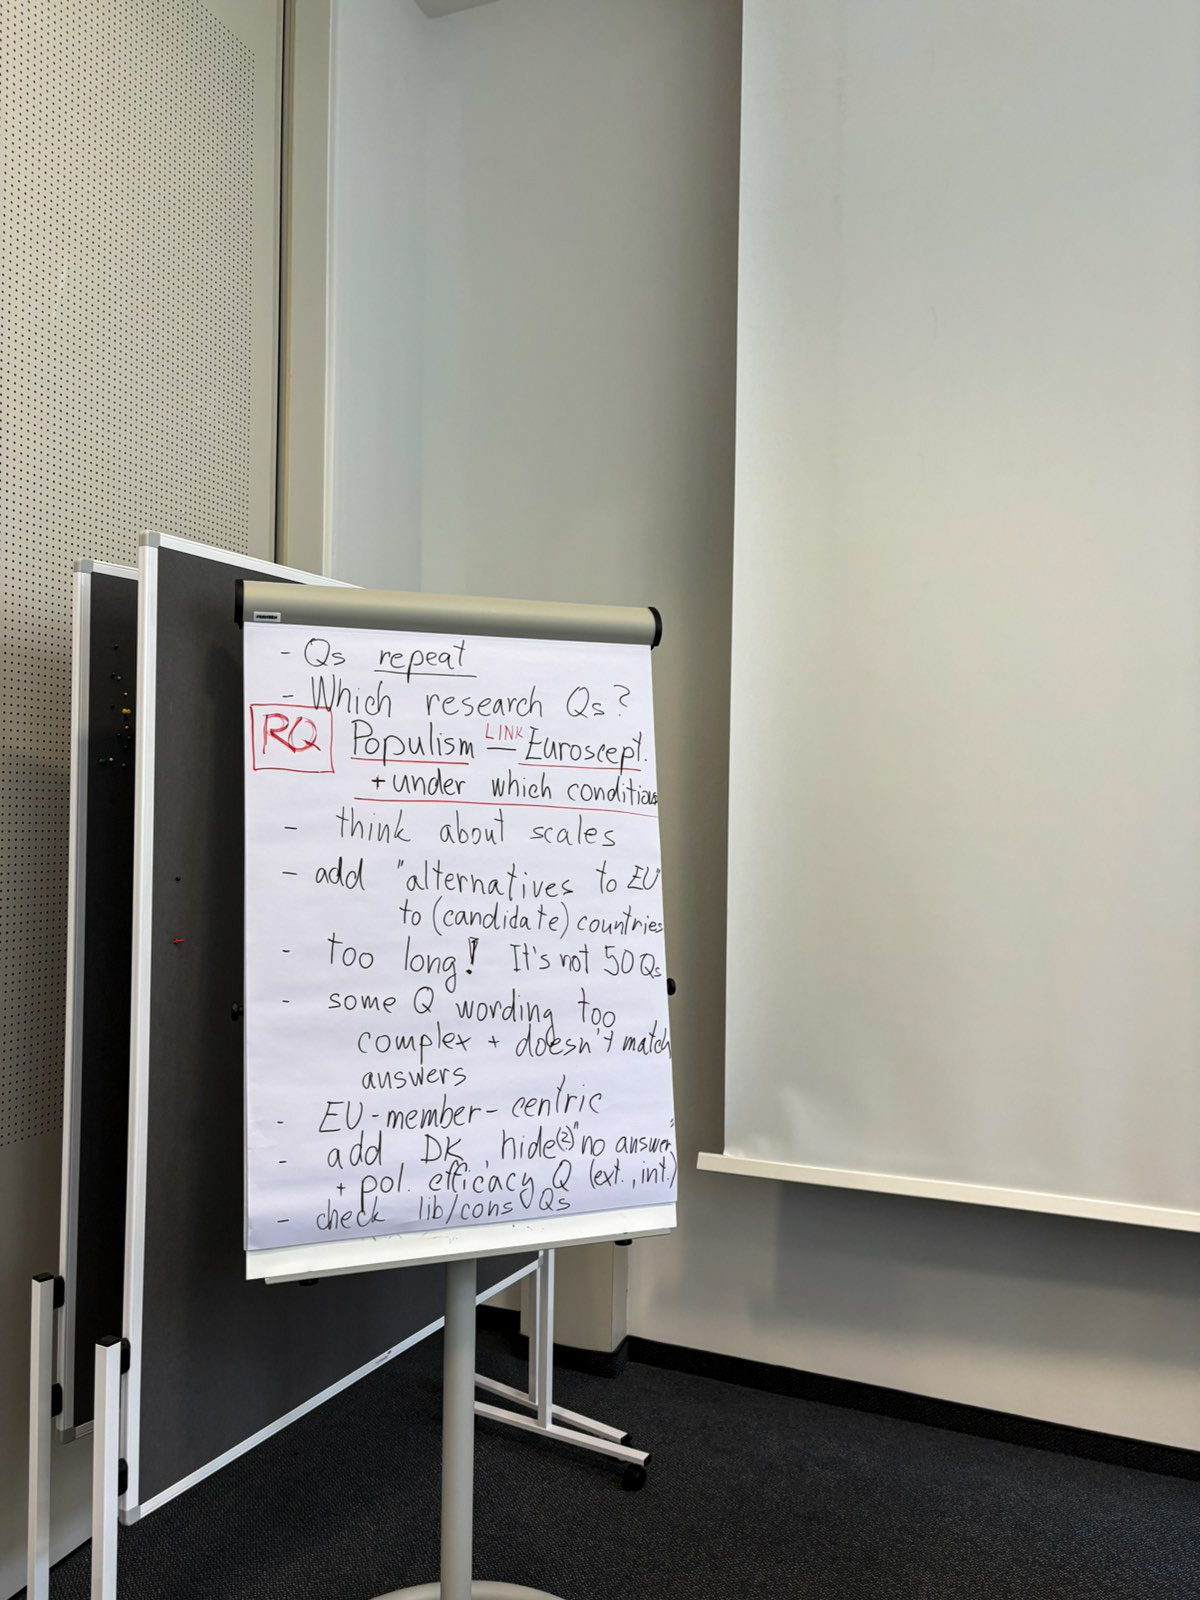 - Qs repeat
- Which research Qs?
RQ Populism LINK — Euroscept.
+ under which conditions
- think about scales
- add "alternatives to EU"
to (candidate) countries
- too long! It's not 50 Qs
- some Q wording too
complex + doesn't match
answers
- EU-member-centric
- add DK, hide(?) "no answer"
+ pol. efficacy Q (ext., int.)
- check lib/cons Qs